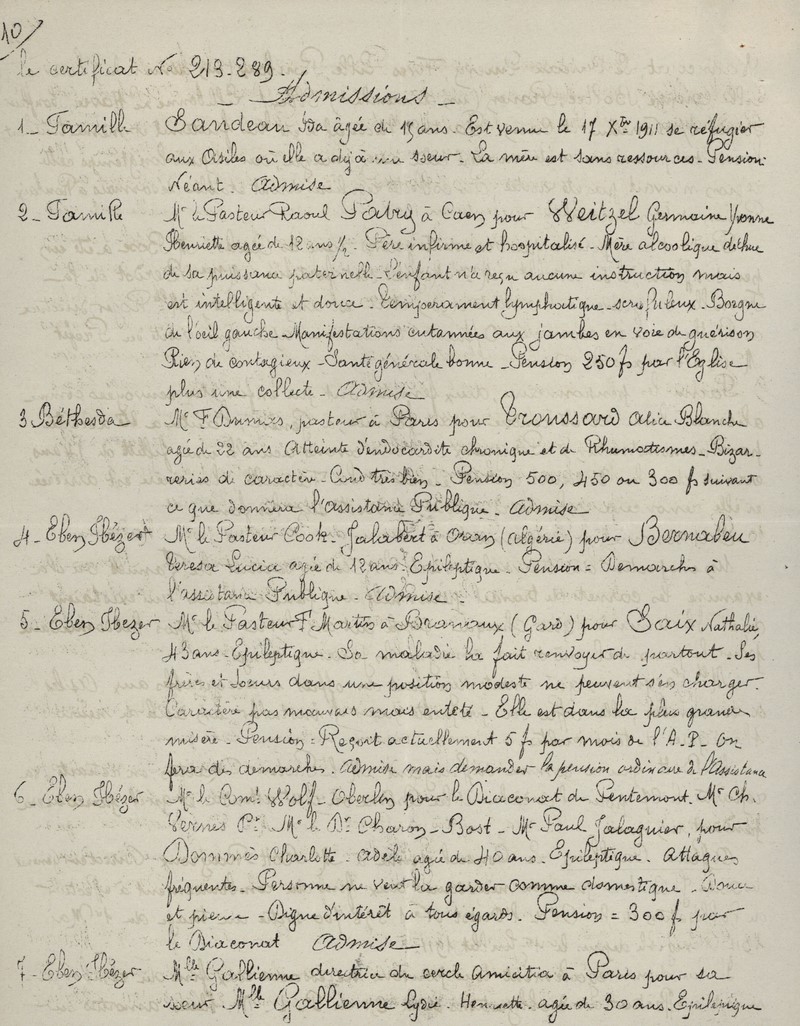 10/
le certificat No 213-289.
Admissions
1_ Famille Sandeau Ida âgée de 15 ans. Est venue le 17 Xbre 1911 se réfugier
aux Asiles où elle a déjà une soeur. La mère est sans ressources. Pension:
Néant. Admise
2_ Famille Mr le Pasteur Raoul Patry à Caen pour Weitzel Germaine Yvonne
Henriette agée de 12 ans 1/2. Père infirme et hospitalisé. Mère alcoolique déchue
de sa puissance paternelle. L'enfant n'a reçu aucune instruction mais
est intelligente et douce. Tempérament lymphatique-scrofuleux. Borgne
de l'oeil gauche. Manifestations cutannées aux jambes en voie de guérison
Rien de contagieux. Santé générale bonne. Pension 250 f par l'Eglise
plus une collecte. Admise
3 Béthesda Mr F Dumas, pasteur à Paris pour Troussard Alice Blanche
agée de 22 ans Atteinte d'endocardite chronique et de Rhumatismes. Bizar-
reries de caractère. Coud très bien. Pension 500, 450 ou 300 f suivant
ce que donnera l'assistance Publique. Admise
4_ Eben Hézer Mr le Pasteur Cook-Jalabert à Oran (Algérie) pour Bernabeu
Teresa Lucia agée de 12 ans. Epileptique. Pension = Démarches à
l'assistance Publique. Admise.
5_ Eben Hezer Mr le Pasteur F Martin à Branoux (Gard) pour Saix Nathalie,
43 ans. Epileptique. Sa maladie la fait renvoyer de partout. Ses
frères et soeurs dans une position modeste ne peuvent s'en charger.
Caractère pas mauvais mais entêté. Elle est dans la plus grande
misère. Pension = Reçoit actuellement 5 f par mois de l'A.P. On
fera des démarches. Admise mais demander la pension ordinaire à l'Assistance
6_ Eben Hézer Mr le Comt Wolf-Oberlin pour le Diaconat de Pentemont. Mr Ch.
Vernes Pt Mr le Dr Charon-Bost-Mr Paul Jalaguier, pour
Dommès Charlotte. Adèle agée de 40 ans. Epileptique. Attaques
fréquentes. Personne ne veut la garder comme domestique. Douce
et pieuse. Digne d'intérêt à tous égards. Pension = 300 f par
le Diaconat Admise
7_ Eben Hézer Mlle Gallienne directrice du cercle Amicitia à Paris pour sa
soeur. Mlle Gallienne Lydie. Henriette. agée de 30 ans. Epileptique